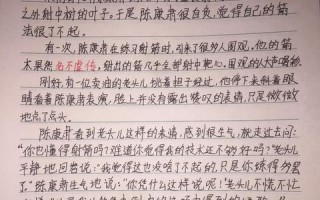 之外射中树的叶子。于是陈康肃很自负，觉得自己的箭
法很了不起。
有一次，陈康肃在练习射箭时，引来了很多人围观，他的箭
术果然名不虚传，射出的箭几乎全部射中靶心。围观的人大声喝彩。
刚好，有一位卖油的老头儿挑着担子经过，他停下来斜着眼
睛看着陈康肃表演，脸上并没有露出赞叹的表情，只是微微地
地点了点头。
陈康肃看到老头儿这样的表情，感到很生气，就走过去问：
“你也懂得射箭吗？难道你觉得我的技术还不够好吗？”老头儿
平静地回答说：“我觉得这也没啥了不起的，只是你练得多罢
了。”陈康肃生气地说：“你凭什么这样说呢！”老头儿不慌不忙